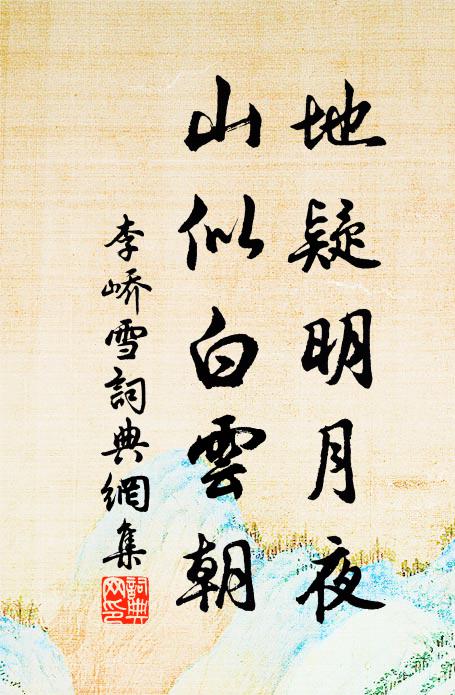 地疑明月夜
山似白雲朝
李嶠雪詞典網集
詞典網印